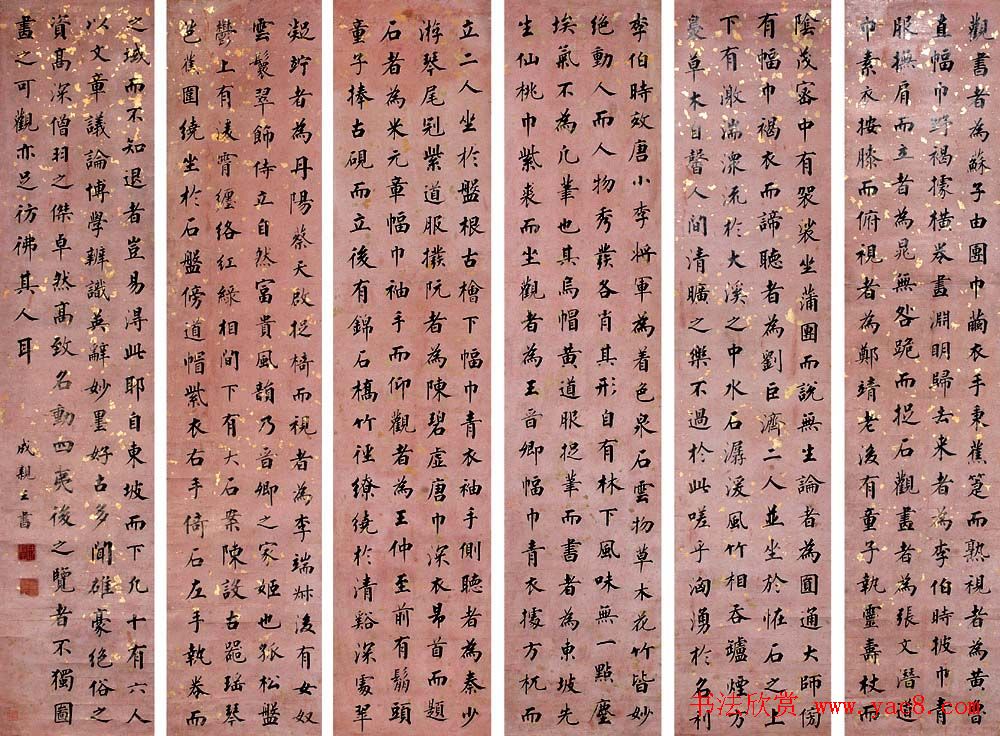 觀書者為蘇子由團巾繭衣手秉蕉箑而熟視者為黃魯
直幅巾野褐據橫卷畫淵明歸去来者為李伯時披巾青
服撫肩而立者為晁無咎跪而捉石觀畫者為張文潛道
巾素衣按膝而俯視者為鄭靖老後有童子執靈壽杖而
陰茂密中有袈裟坐蒲團而說無生論者為圓通大師傍
有幅巾褐衣而諦聽者為劉巨濟二人並坐於怪石之上
下有激湍潀流於大溪之中水石潺湲風竹相吞罏煙方
裊草木自馨人間清曠之樂不過於此嗟乎洶湧於名利
李伯時效唐小李將軍為着色泉石雲物草木花竹皆妙
絶動人而人物秀發各肖其形自有林下風味無一點塵
埃氣不為凡筆也其烏帽黃道服捉筆而書者為東坡先
生仙桃巾紫裘而坐觀者為王晉卿幅巾青衣據方杌而
立二人坐於盤根古檜下幅巾青衣袖手側聽者為秦少
游琴尾剡紫道服撥阮者為陳碧虛唐巾深衣昂首而題
石者為米元章幅巾袖手而仰觀者為王仲至前有鬅頭
童子捧古硯而立後有錦石橋竹徑繚繞於清谿深處翠
凝竚者為丹陽蔡天啟捉椅而視者為李端叔後有女奴
雲鬟翠飾侍立自然富貴風韻乃晉卿之家姬也孤松盤
鬱上有凌霄纏絡紅綠相間下有大石案陳設古器瑤琴
芭蕉圍繞坐於石盤傍道帽紫衣右手倚石左手執卷而
之域而不知退者豈易得此耶自東坡而下凡十有六人
以文章議論博學辨識英辭妙墨好古多聞雄豪絶俗之
資高深僧羽之傑卓然高致名動四夷後之覽者不獨圖
畫之可觀亦足彷彿其人耳
成親王書
书法欣赏 www.yac8.com